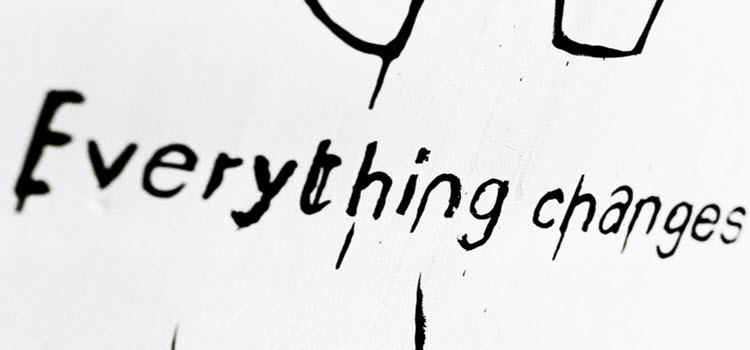 Everything changes